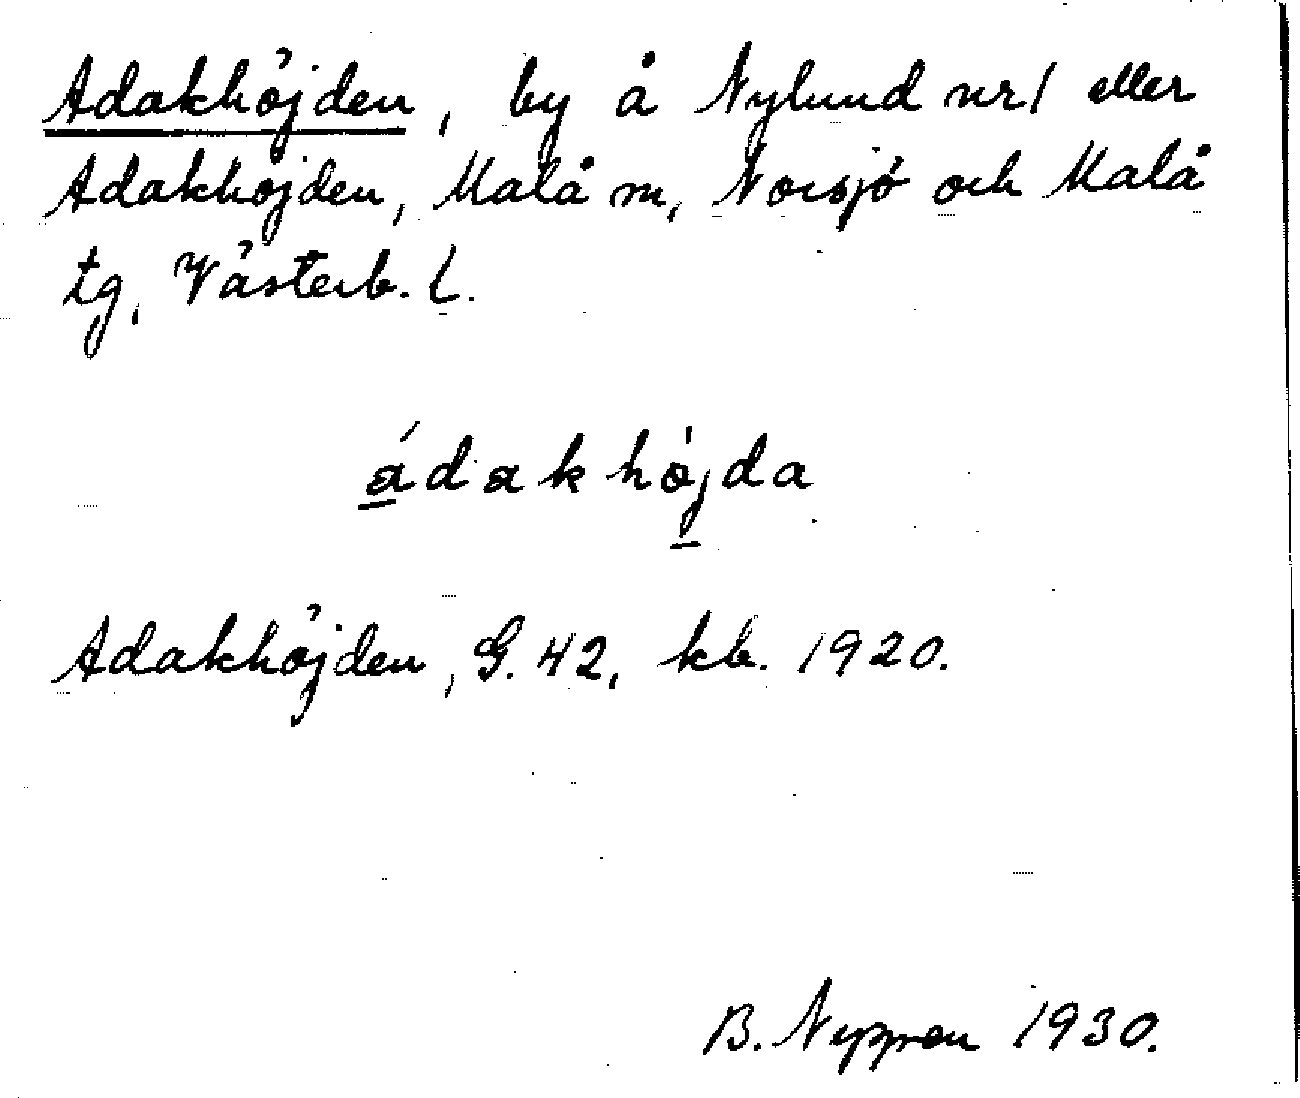 Adakhöjden, by å Nylund nr 1 eller
Adakhöjden, Malå sn, Norsjö och Malå
tg, Västerb. l.
ádakhöjda
Adakhöjden, G. 42, kb. 1920.
B. 1930.